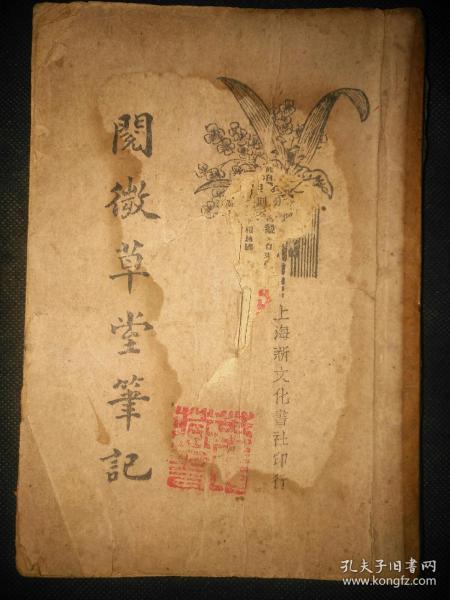 閱微草堂筆記
上海新文化書社印行
孔夫子旧书网
www.kongfz.com